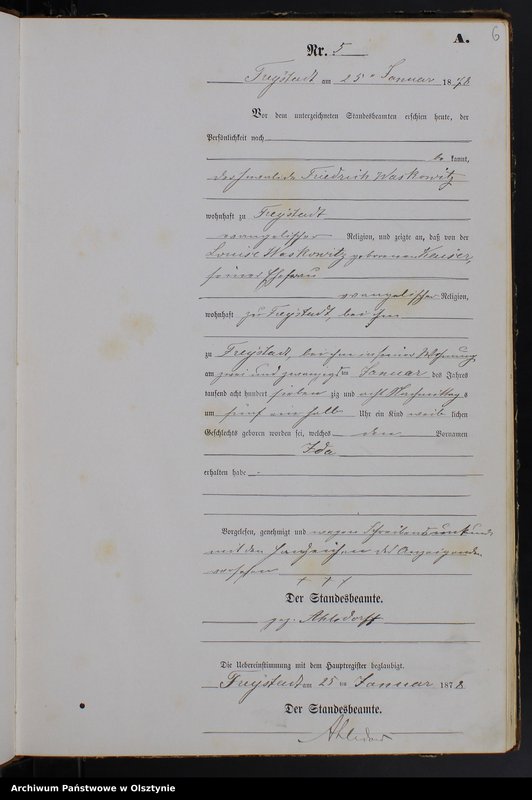 6
A.
Nr. 5
Freystadt am 25ten Januar 1878
Vor dem unterzeichneten Standesbeamten erschien heute, der
Persönlichkeit nach
be kannt,
Friedrich Waskowitz
wohnhaft zu Freystadt
evangelischer Religion, und zeigte an, daß von der
Louise Waskowitz geborenen
seiner Ehefrau
evangelischer Religion,
wohnhaft zu Freystadt, bei ihm
zu Freystadt, bei ihm in seiner Wohnung
am zwei und zwanzigsten Januar des Jahres
tausend acht hundert sieben zig und acht Nachmittags
um fünf ein halb Uhr ein Kind weib lichen
Geschlechts geboren worden sei, welches den Vornamen
Ida
erhalten habe
Vorgelesen, genehmigt und wegen Schreibensunkunde
mit den Handzeichen des Anzeigenden
versehen
† † †
Der Standesbeamte.
gez. Ahlsdorff
Die Uebereinstimmung mit dem Hauptregister beglaubigt.
Freystadt am 25ten Januar 1878
Der Standesbeamte.
Ahlsdorff
Archiwum Państwowe w Olsztynie